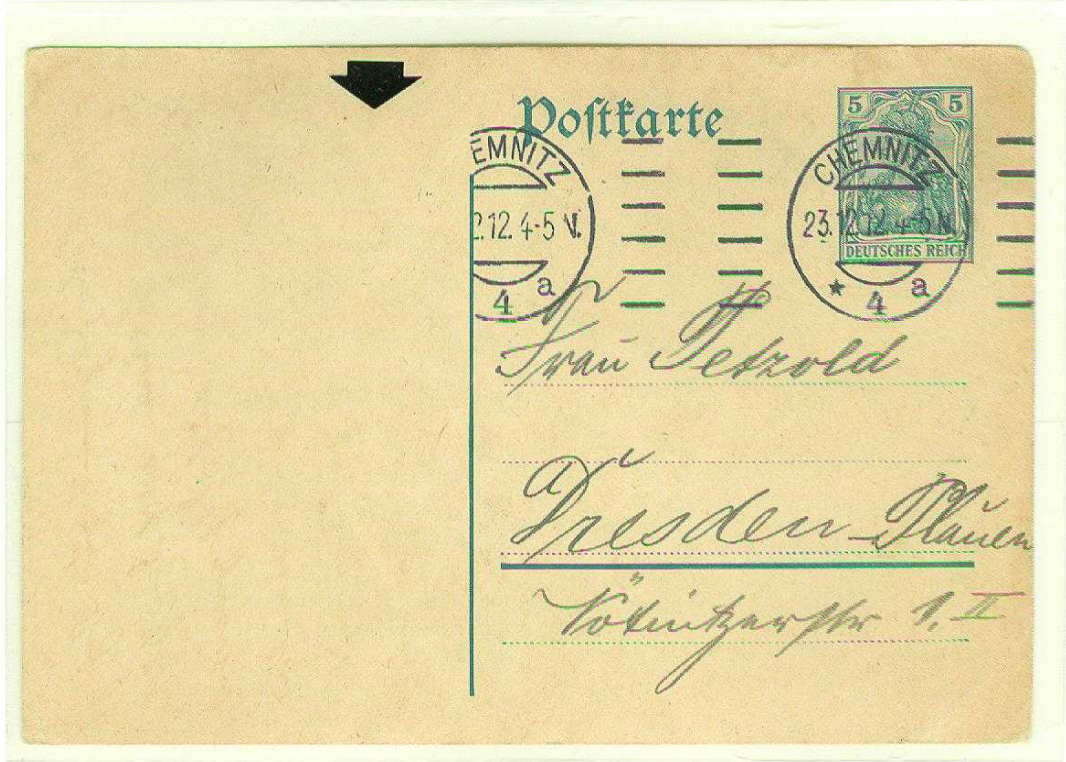 Postkarte
5 5
EMNITZ
2.12. 4-5 N.
4 a
CHEMNITZ
23.12.12. 4-5 N.
* 4 a
DEUTSCHES REICH
Frau Petzold
Dresden-Plauen
Nötnitzerstr 1. II